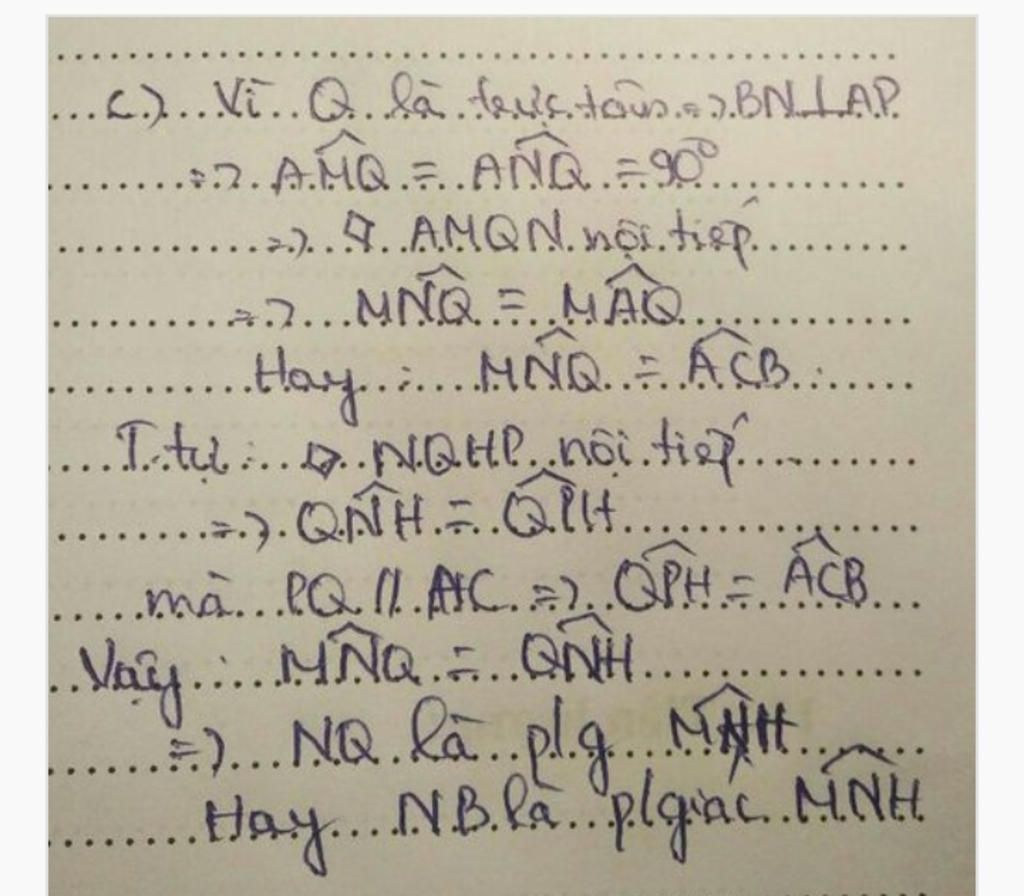 c) Vì Q là trực tâm => BN ⊥ AP
=> AM̂Q = AN̂Q = 90°
=> ◊ AMQN nội tiếp
=> MN̂Q = MÂQ
Hay : MN̂Q = AĈB
T. tự : ◊ NQHP nội tiếp
=> QN̂H = QP̂H
mà PQ // AC => QP̂H = AĈB
Vậy : MN̂Q = QN̂H
=> NQ là p/g MN̂H
Hay NB là p/giác MN̂H